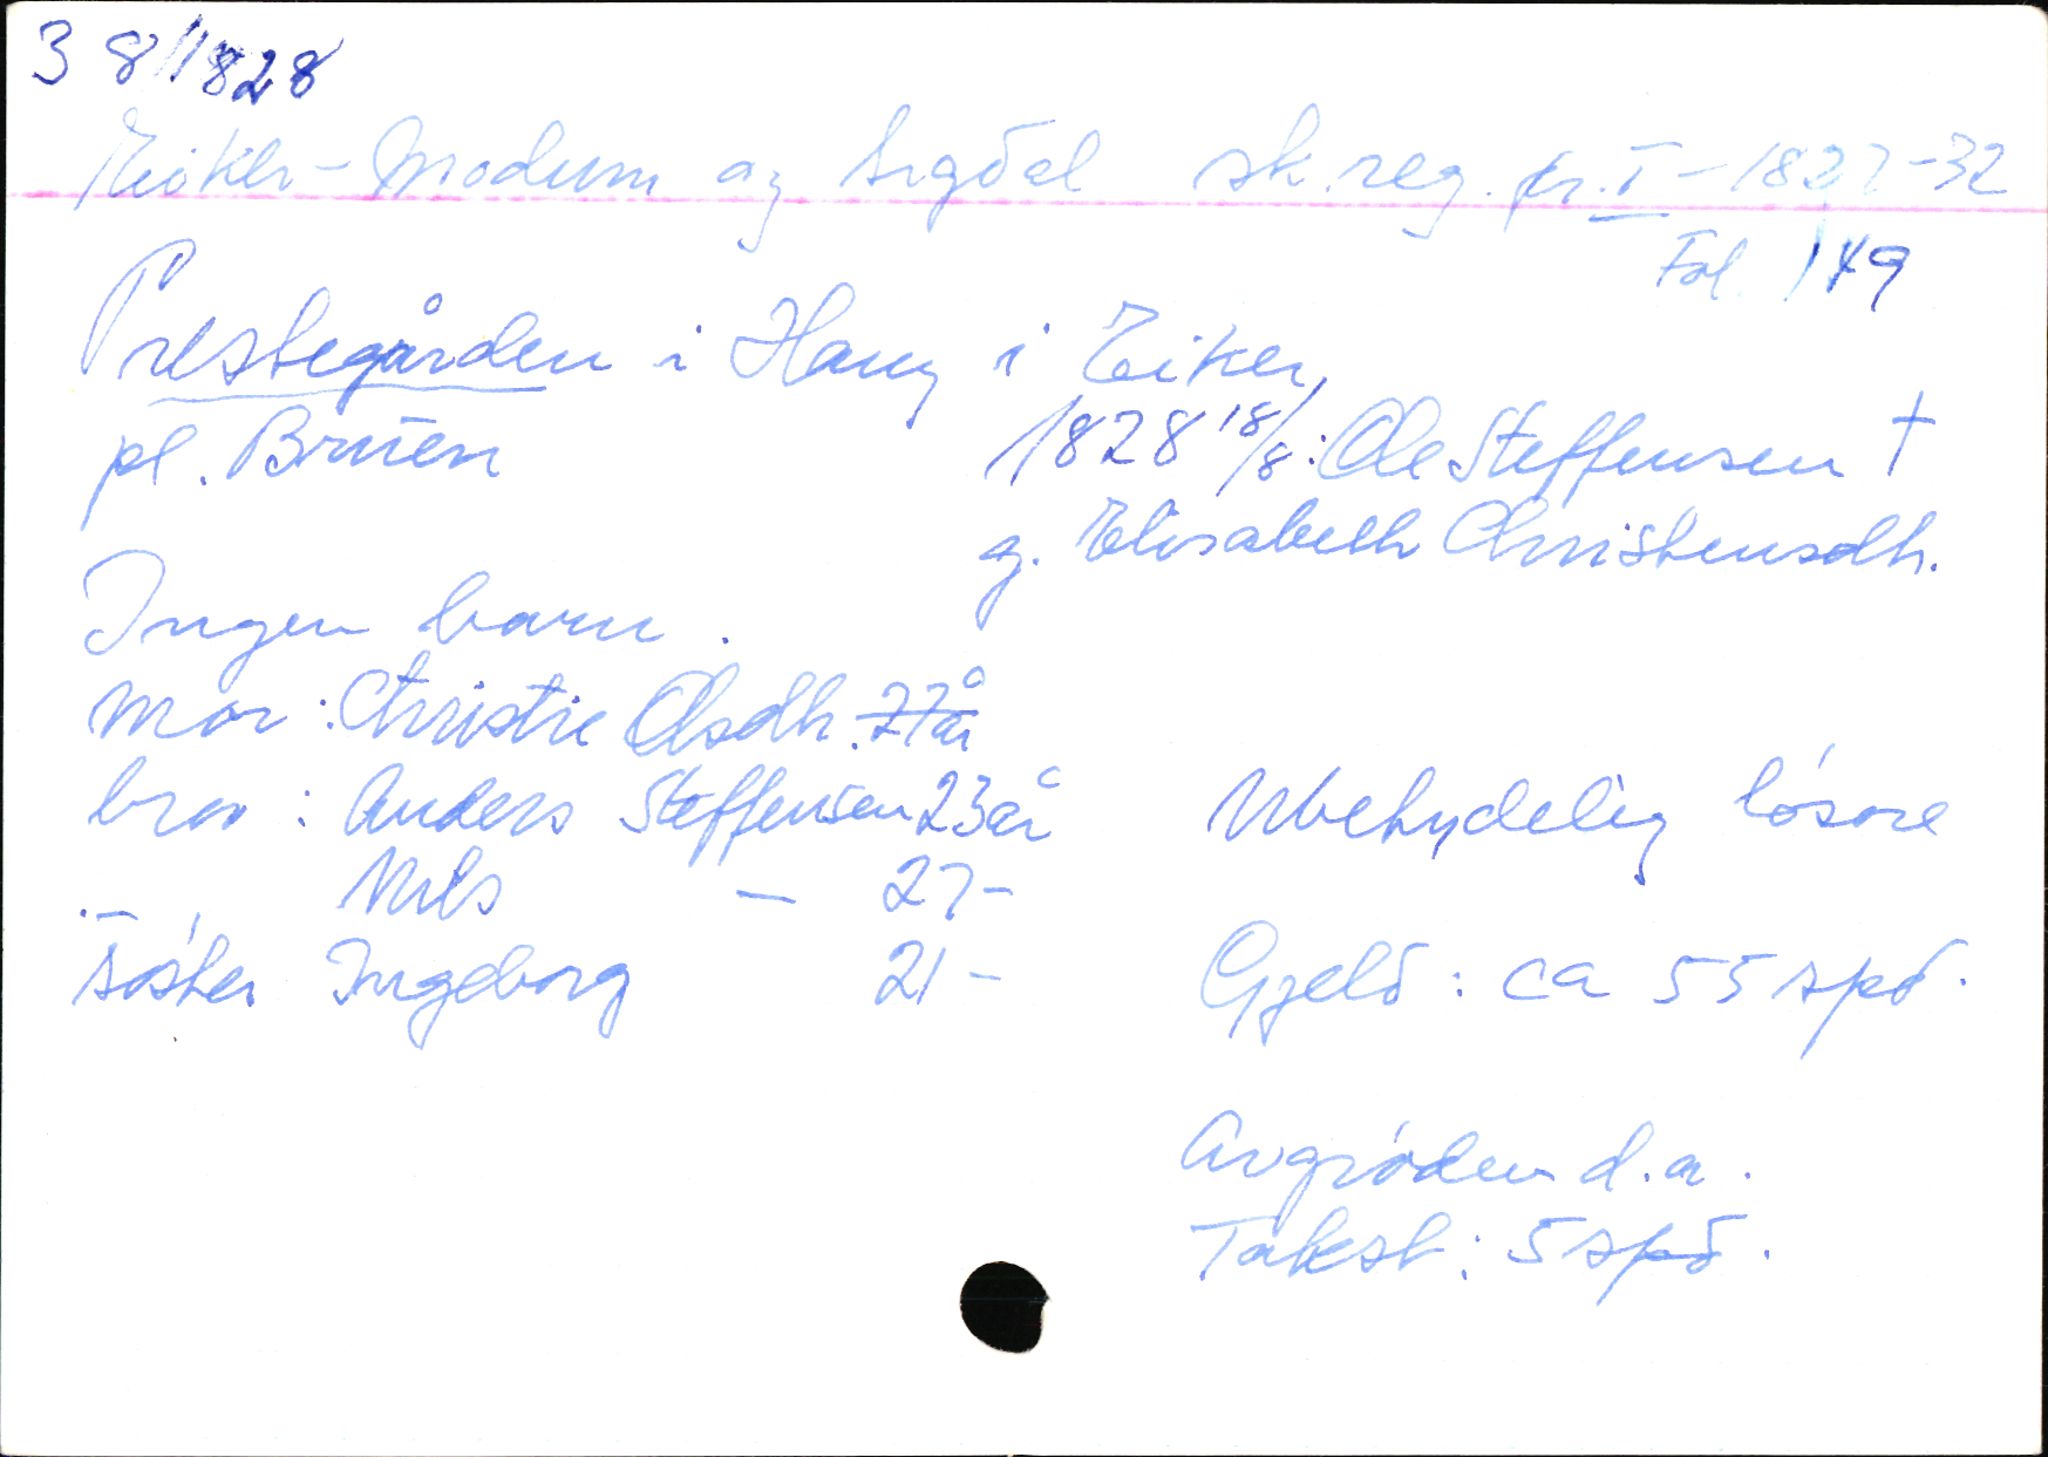 3 8/1828
Eiker-Modum og Sigdal sk.reg. pr. I - 1827-32
Fol. 149
Prestegården i Haug i Eiker,
pl. Bruen 1828 18/8: Ole Steffensen †
g. Elisabeth Christensdh.
Ingen barn.
mor: Christie Olsdh. 77 år
bror: Anders Steffensen 23 år Ubetydelig løsøre
Nils — 27 -
søster Ingeborg 21 - Gjeld: ca 55 spd.
Avgrøden d.a.
Takst: 5 spd.